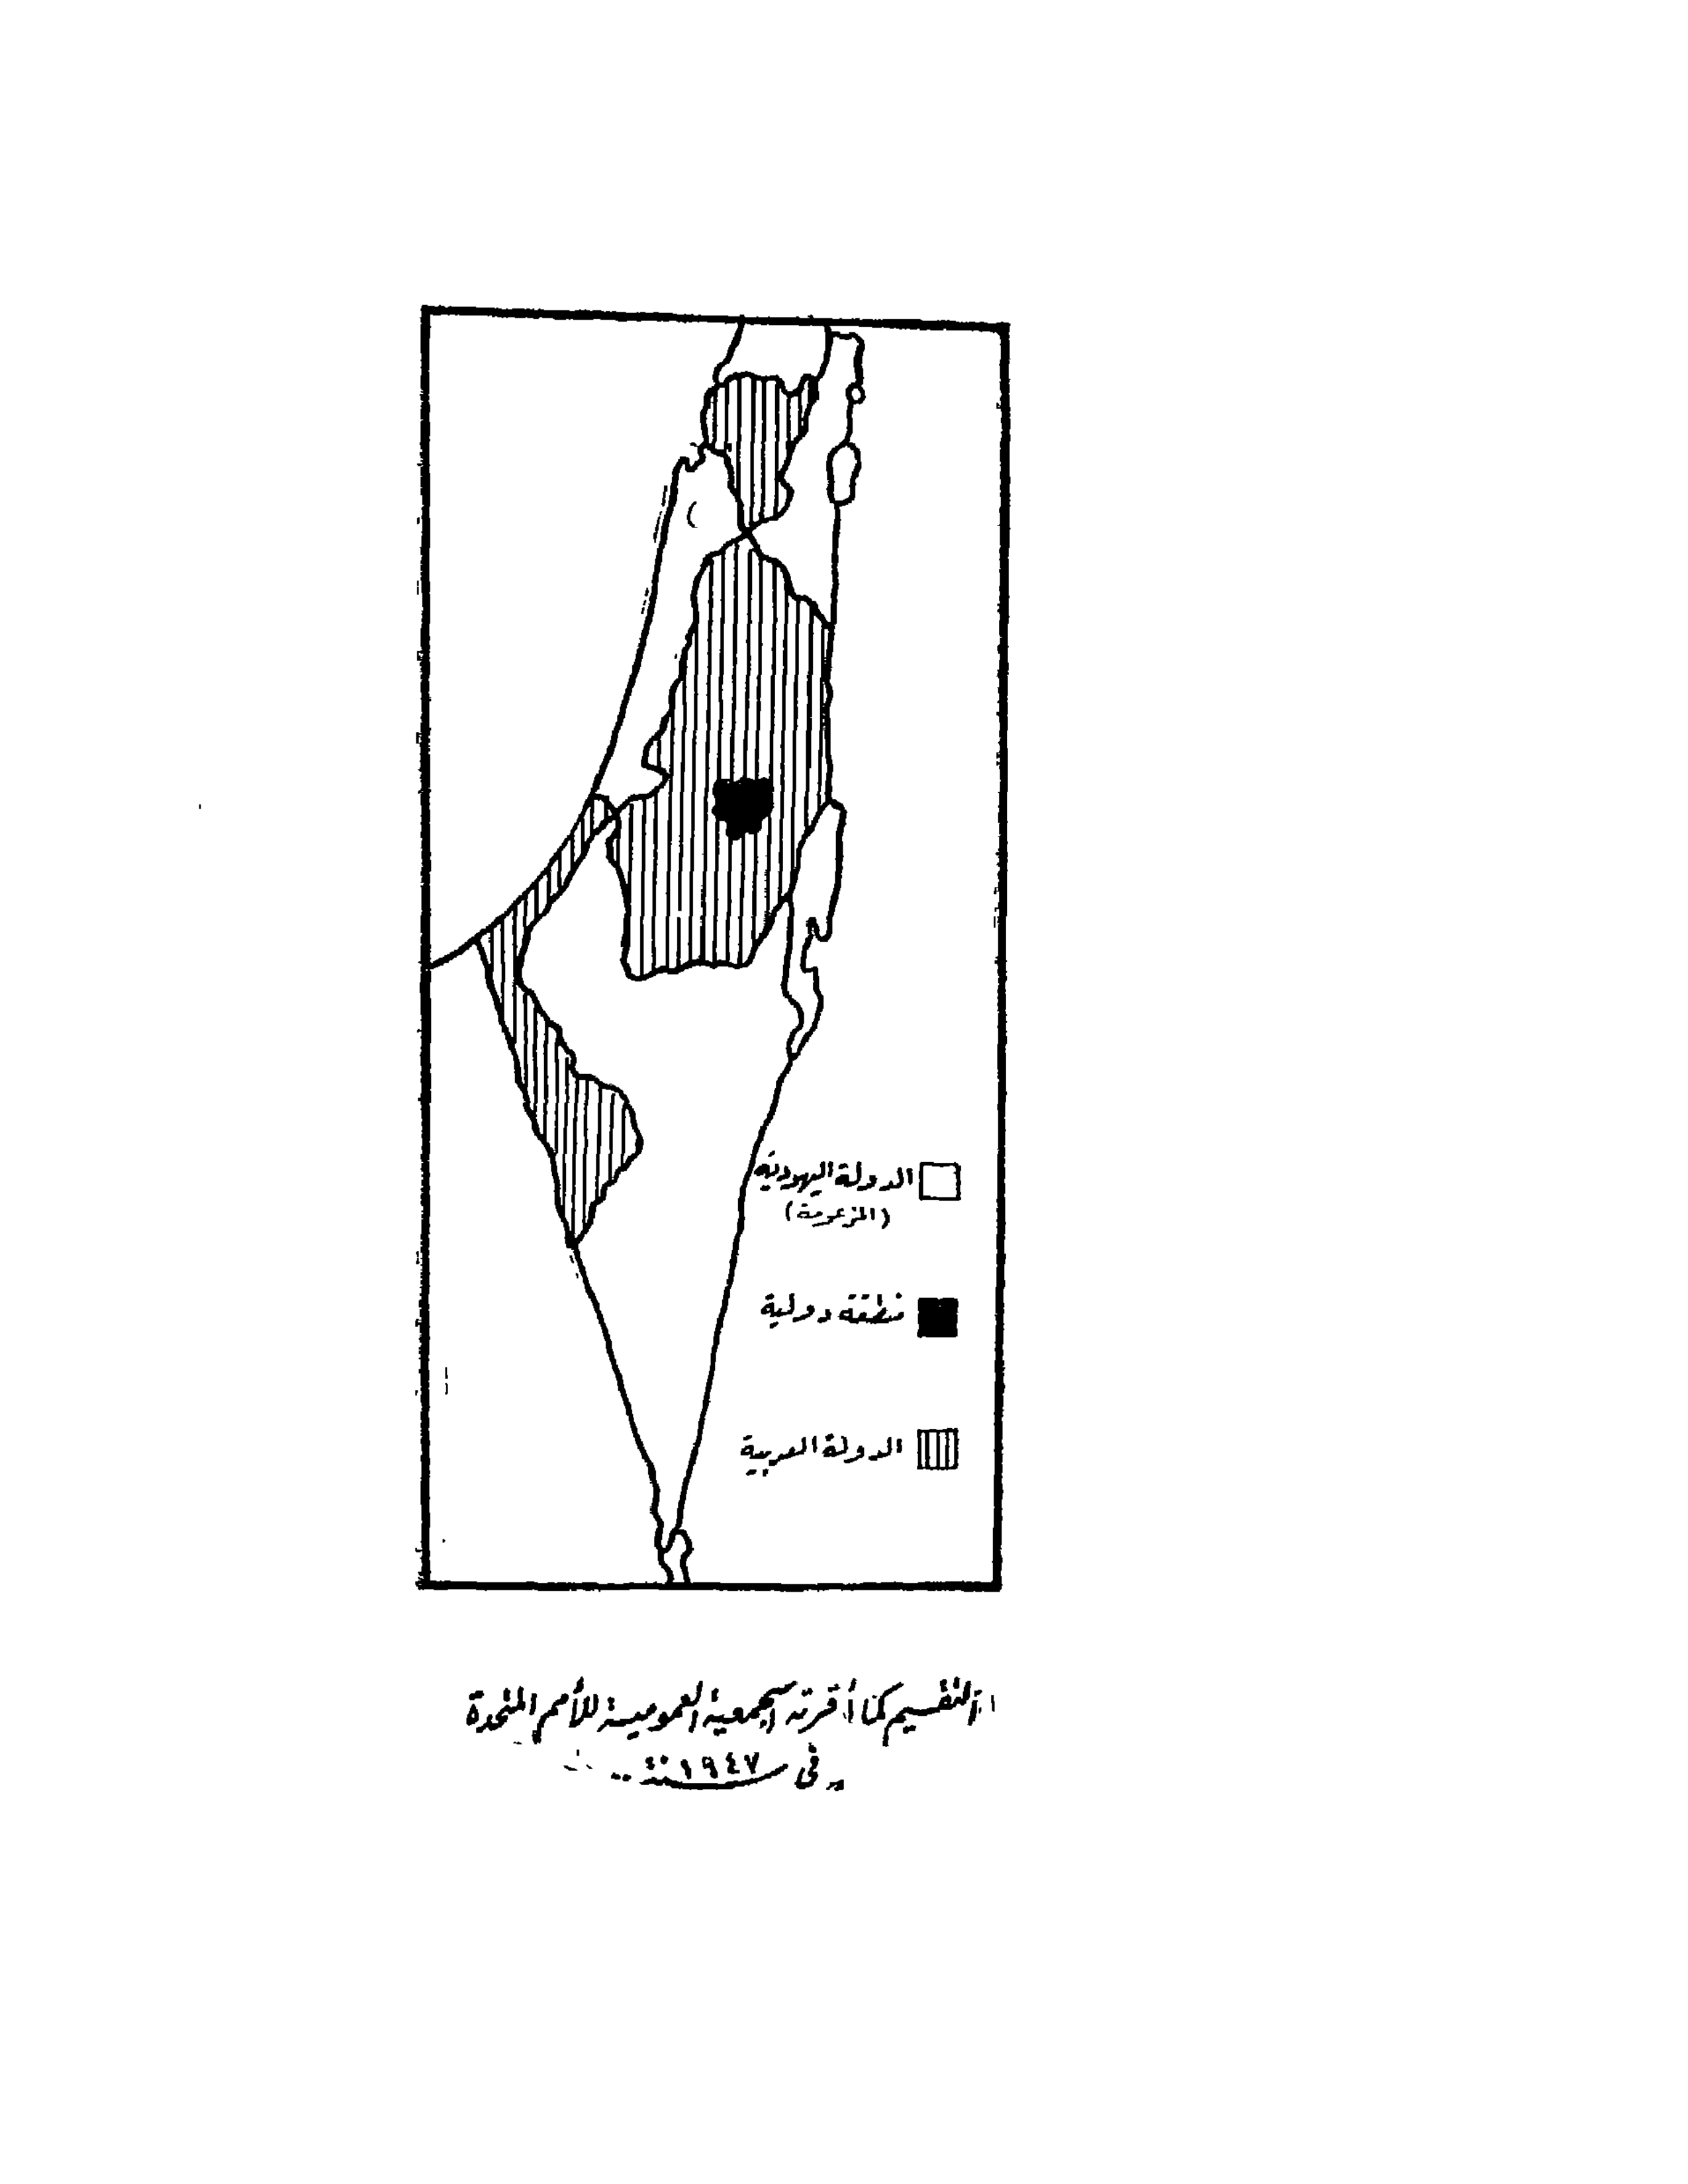 الدولة اليهودية
(المزعومة)
منطقة دولية
الدولة العربية
التقسيم كما أقرته الجمعية العمومية للأمم المتحدة
فى ١٩٤٧